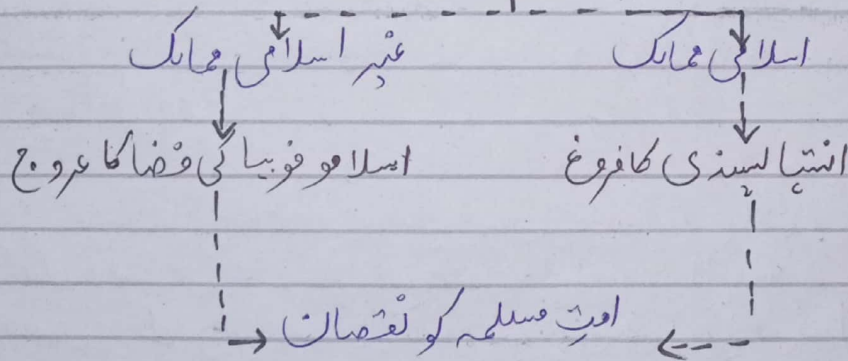 اسلامی ممالک
غیر اسلامی ممالک
انتہا پسندی کا فروغ
اسلامو فوبیا کی فضا کا عروج
امتِ مسلمہ کو نقصان